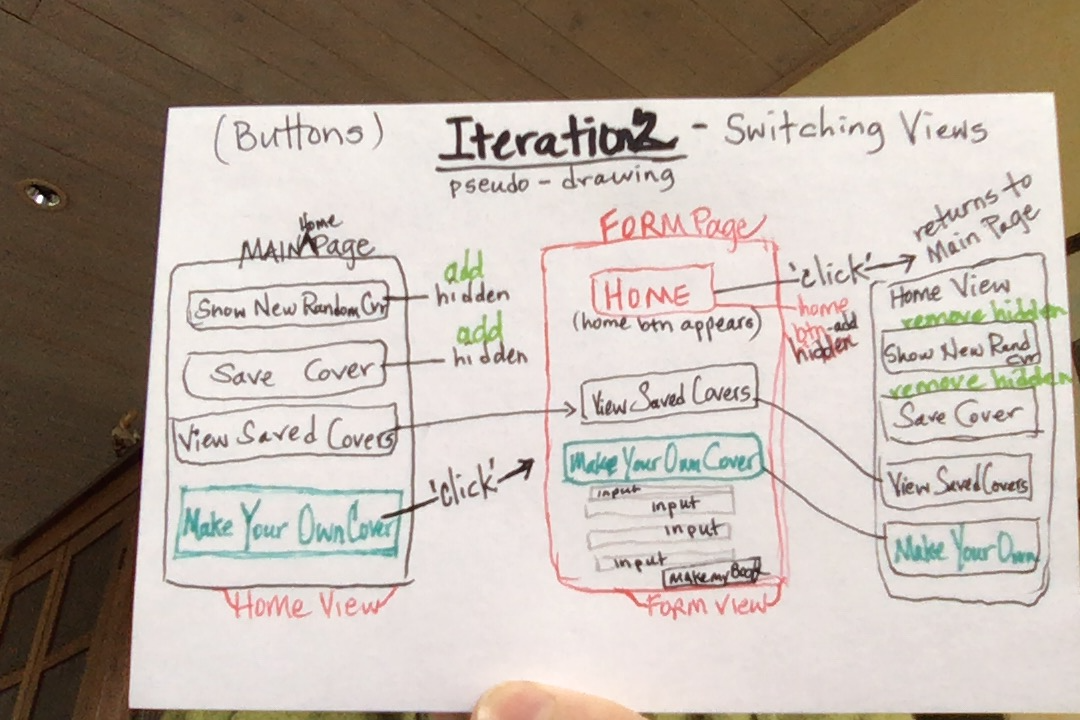 (Buttons)
Iteration 2 - Switching Views
pseudo-drawing
Home
MAIN ^ Page
Show New Random Cvr
add
hidden
Save Cover
add
hidden
View Saved Covers
Make Your Own Cover
'click'
Home View
FORM Page
HOME
(home btn appears)
'click'
home
btn-add
hidden
View Saved Covers
Make Your Own Cover
input
input
input
input
Make my Book
FORM VIEW
returns to
Main Page
Home View
remove hidden
Show New Rand
Cvr
remove hidden
Save Cover
View Saved Covers
Make Your Own